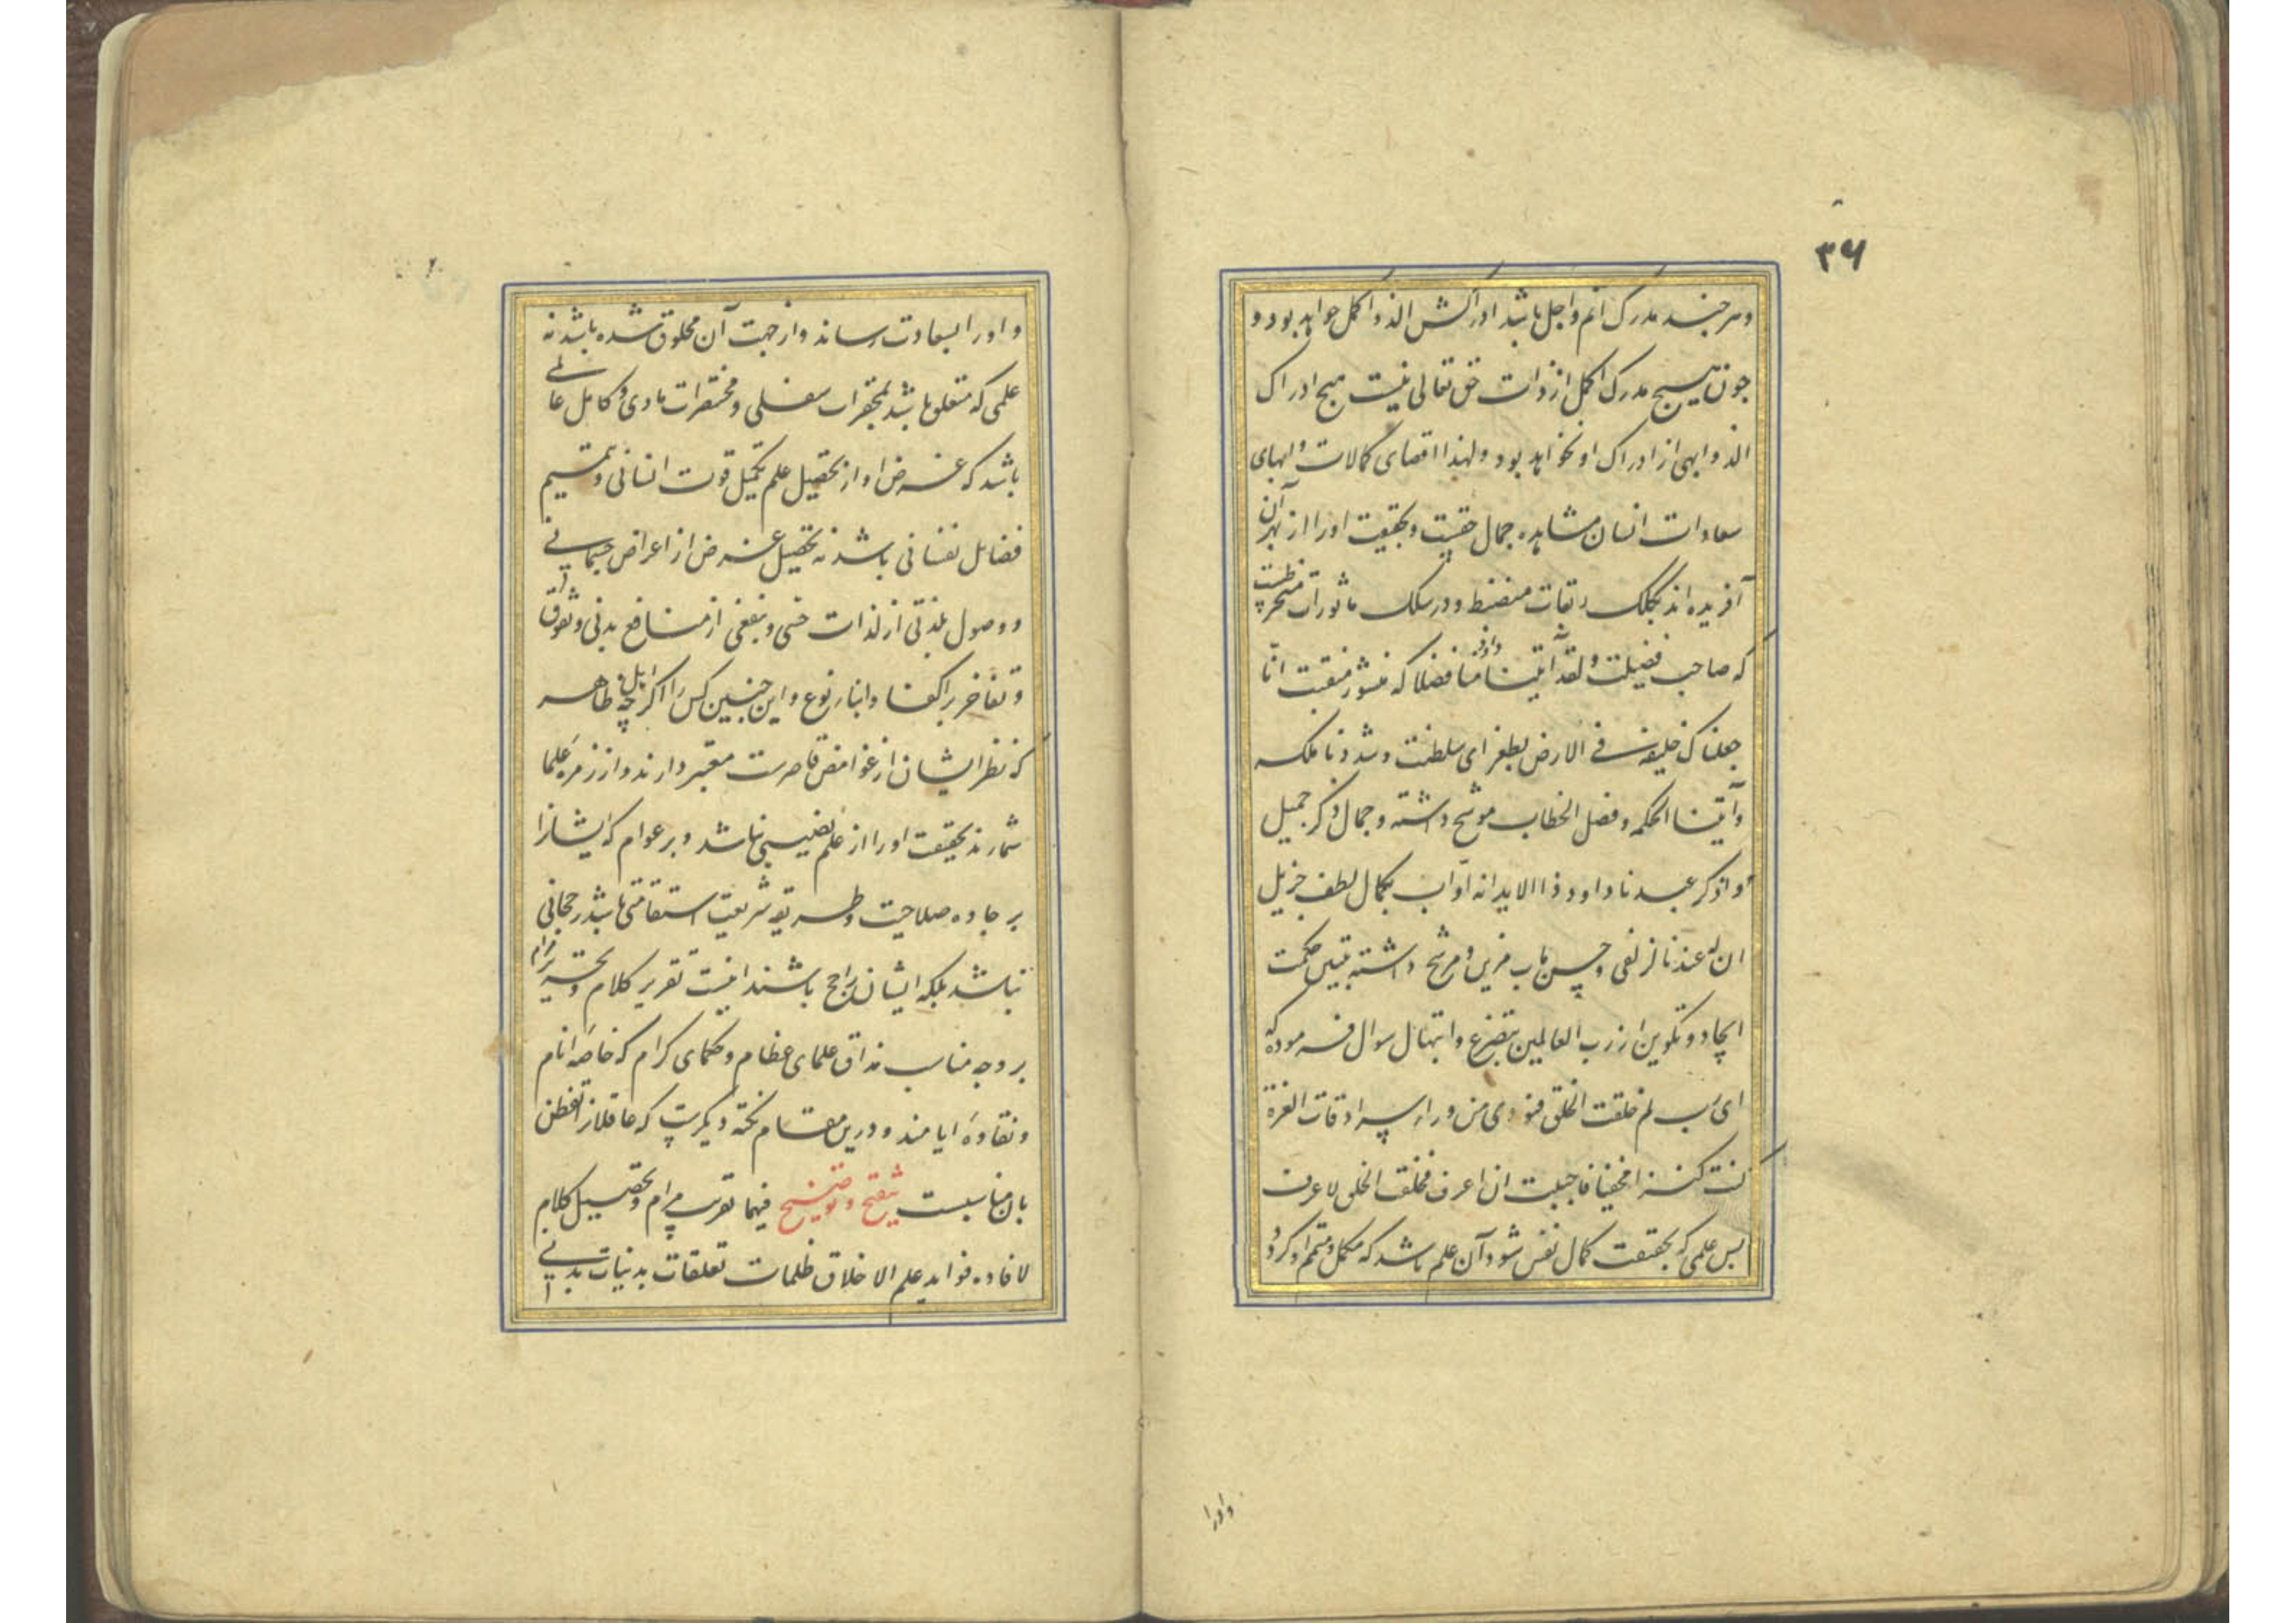 ۳۶
و هر چند مدرک اتم و اجل باشد ادراکش الذ و اکمل خواهد بود و
چون هیچ مدرک اکمل از ذات حق تعالی نیست هیچ ادراک
الذ و ابهی از ادراک او نخواهد بود و لهذا اقصای کمالات و ابهای
سعادات انسان مشاهده جمال حقیقت و بحقیقت او را از بهر آن
آفریده اند بکلک منضبط و در سلک ماثورات منخرطست
که صاحب فضیلت و لقد آتینا داود منا فضلا که منشور منقبت انّا
جعلناک خلیفه فی الارض بطغرای سلطنت و شددنا ملکه
و آتینا الحکمه و فصل الخطاب موشح داشته و جمال ذکر جمیل
و اذکر عبدنا داود ذا الاید انه اوّاب بکمال لطف جزیل
ان له عندنا لزلفی و حسن مآب مزین و مرشح داشته حکمت
ایجاد و تکوین از رب العالمین بتضرع و ابتهال سوال فرموده که
ای رب لم خلقت الخلق فنودی من وراء سرادقات العزة
کنت کنزا مخفیا فاحببت ان اعرف فخلقت الخلق لاعرف
پس علمی که بحقیقت کمال نفس شود آن علم باشد که مکمل و متمم او کردد
و او را
و او را بسعادت رساند و از جهت آن مخلوق شده باشد نه
علمی که متعلق باشد بمحقرات سفلی و مختصرات مادی و کامل عالمی
باشد که غرض او از تحصیل علم تکمیل قوت انسانی و تتمیم
فضائل نفسانی باشد نه تحصیل غرض از اعراض جسمانی
و وصول بلذتی از لذات حسی و بنفعی از منافع بدنی و تفوق
و تفاخر بر اکفا و ابنا نوع و این چنین کس را اگر چه اهل ظاهر
که نظر ایشان از غوامض قاصرست معتبر دارند و از زمره علما
شمارند بحقیقت او را از علم نصیبی نباشد و بر عوام که ایشانرا
بر جاده صلاحیت و طریقه شریعت استقامتی باشد رجحانی
نباشد بلکه ایشان راجح باشند اینست تقریر کلام و تحریر مرام
بر وجه مناسب مذاق علمای عظام و حکمای کرام که خاصه انام
و نقاوه ایامند و درین مقام نکته دیگرست که عاقلانرا تفطن
بان مناسبست تنقیح و توضیح فیها تقریب مرام و تحصیل کلام
لافاده فواید علم الاخلاق ظلمات تعلقات بدنیات بدنی